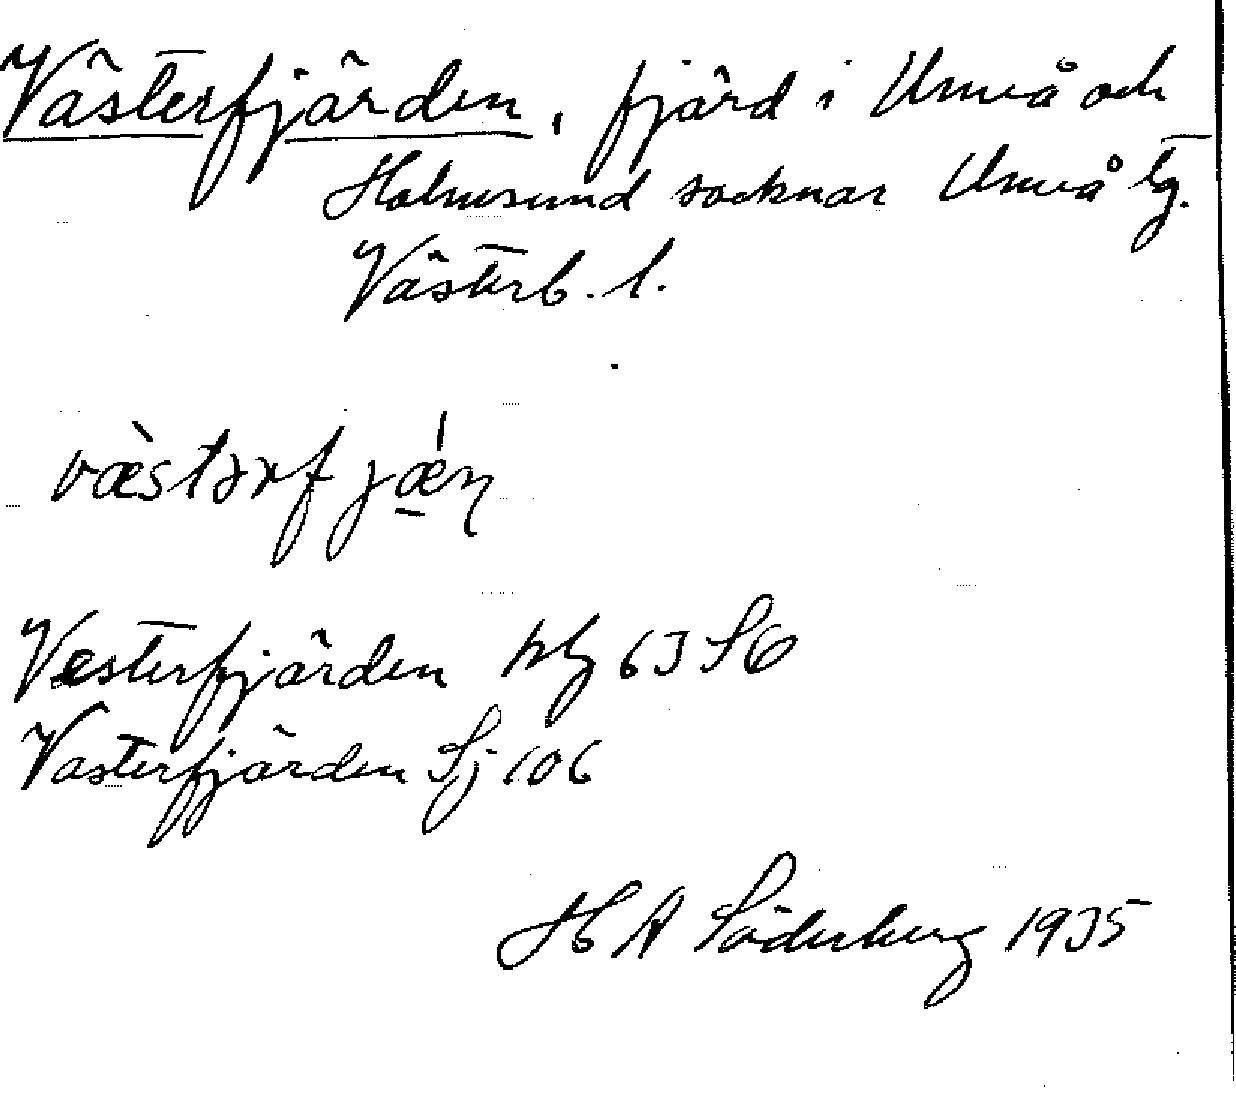 Västerfjärden, fjärd i Umeå och
Holmsund socknar Umeå tg.
Västerb. l.
væ̀stərfjǽ̱ɳ
Vesterfjärden hlg 63 SÖ
Västerfjärden Sj 106
H A Söderberg 1935